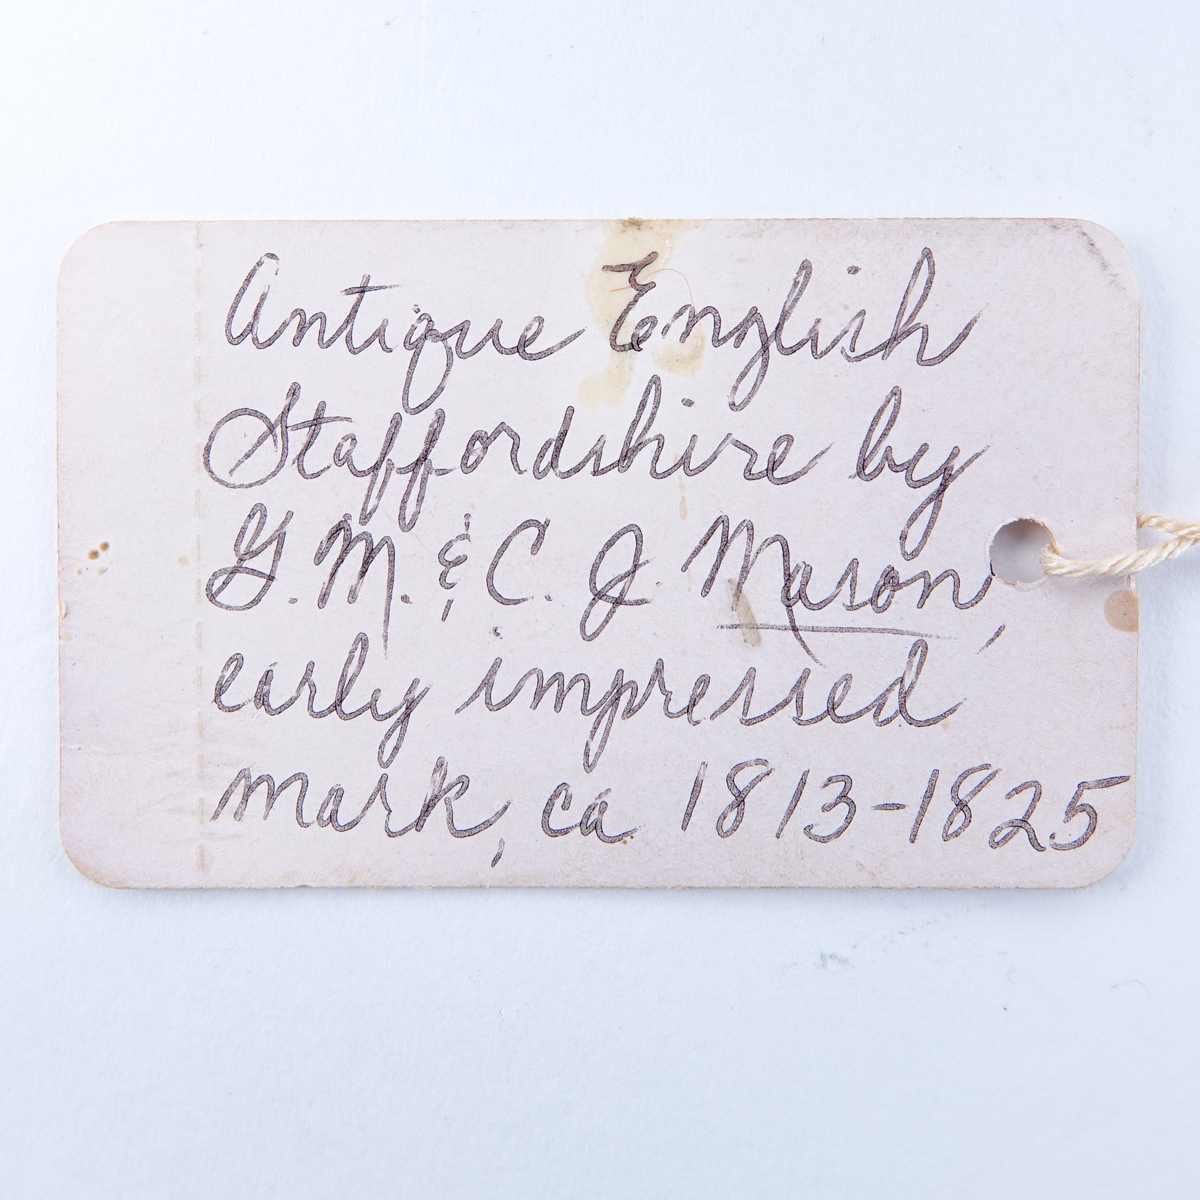 Antique English
Staffordshire by
G. M. & C. J. Mason,
early impressed
mark, ca 1813-1825